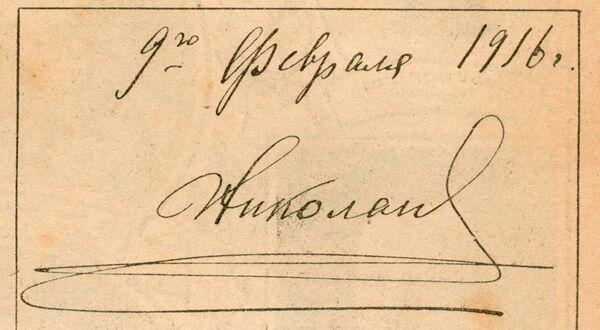 9го Февраля 1916 г.
Николай